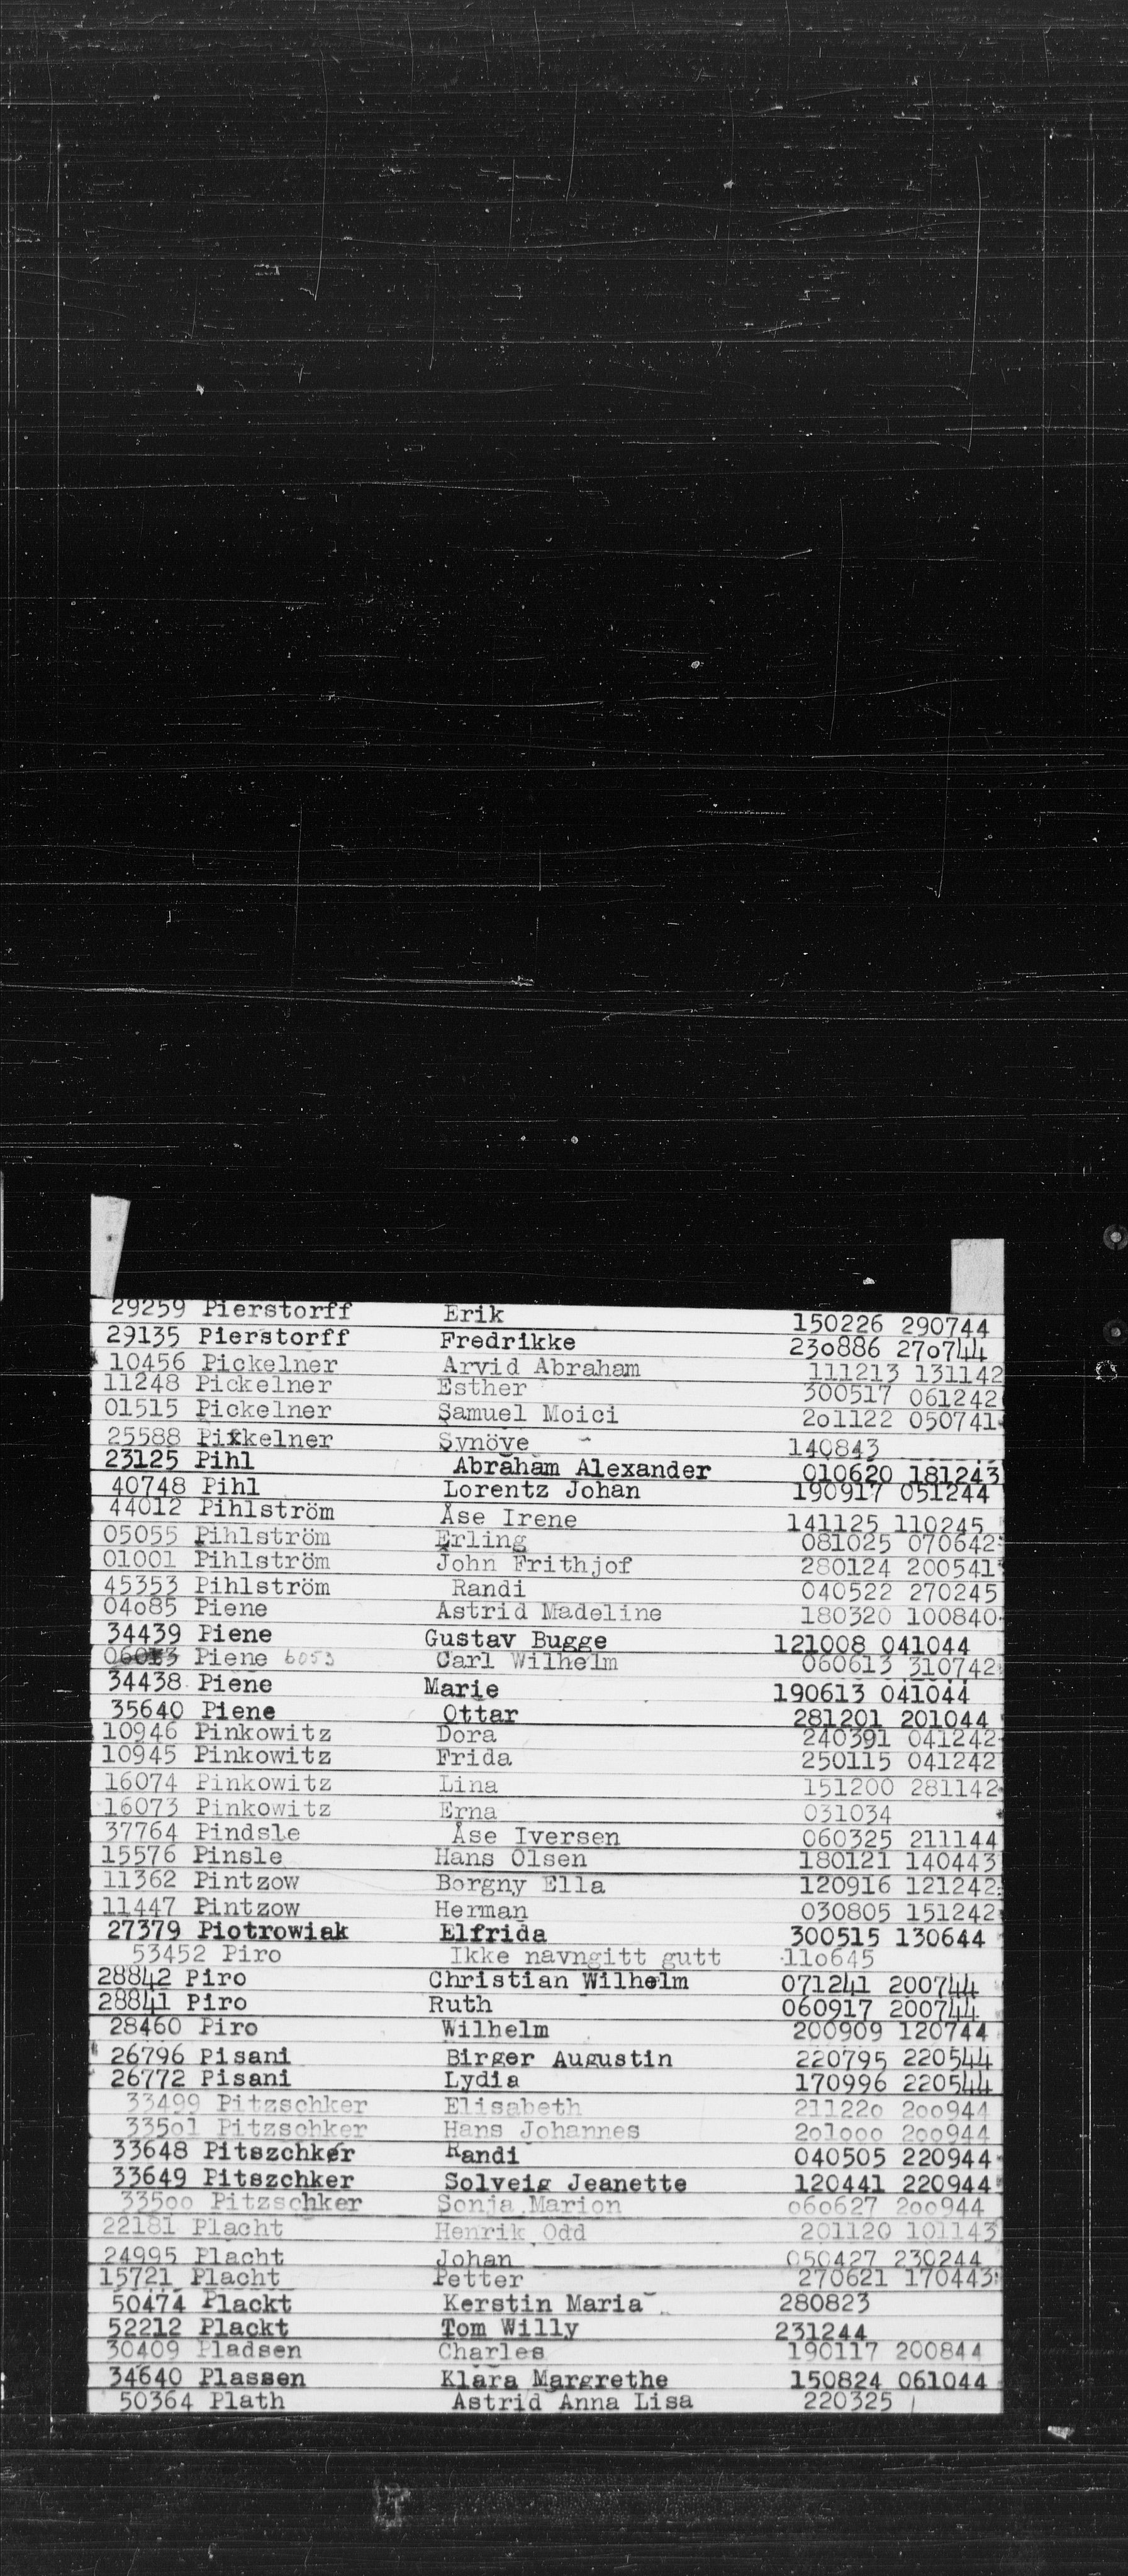 29259 Pierstorff Erik 150226 290744
29135 Pierstorff Fredrikke 230886 270744
10456 Pickelner Arvid Abraham 111213 131142
11248 Pickelner Esther 300517 061242
01515 Pickelner Samuel Moici 201122 050741
25588 Pikkelner Synöve 140843
23125 Pihl Abraham Alexander 010620 181243
40748 Pihl Lorentz Johan 190917 051244
44012 Pihlström Åse Irene 141125 110245
05055 Pihlström Erling 081025 070642
01001 Pihlström John Frithjof 280124 200541
45353 Pihlström Randi 040522 270245
04085 Piene Astrid Madeline 180320 100840
34439 Piene Gustav Bugge 121008 041044
Piene 6053 Carl Wilhelm 060613 310742
34438 Piene Marie 190613 041044
35640 Piene Ottar 281201 201044
10946 Pinkowitz Dora 240391 041242
10945 Pinkowitz Frida 250115 041242
16074 Pinkowitz Lina 151200 281142
16073 Pinkowitz Erna 031034
37764 Pindsle Åse Iversen 060325 211144
15576 Pinsle Hans Olsen 180121 140443
11362 Pintzow Borgny Ella 120916 121242
11447 Pintzow Herman 030805 151242
27379 Piotrowiak Elfrida 300515 130644
53452 Piro Ikke navngitt gutt 110645
28842 Piro Christian Wilhelm 071241 200744
28841 Piro Ruth 060917 200744
28460 Piro Wilhelm 200909 120744
26796 Pisani Birger Augustin 220795 220544
26772 Pisani Lydia 170996 220544
33499 Pitzschker Elisabeth 211220 200944
33501 Pitzschker Hans Johannes 201000 200944
33648 Pitszchker Randi 040505 220944
33649 Pitszchker Solveig Jeanette 120441 220944
33500 Pitzschker Sonja Marion 060627 200944
22181 Placht Henrik Odd 201120 101143
24995 Placht Johan 050427 230244
15721 Placht Petter 270621 170443
50474 Plackt Kerstin Maria 280823
52212 Plackt Tom Willy 231244
30409 Pladsen Charles 190117 200844
34640 Plassen Klara Margrethe 150824 061044
50364 Plath Astrid Anna Lisa 220325